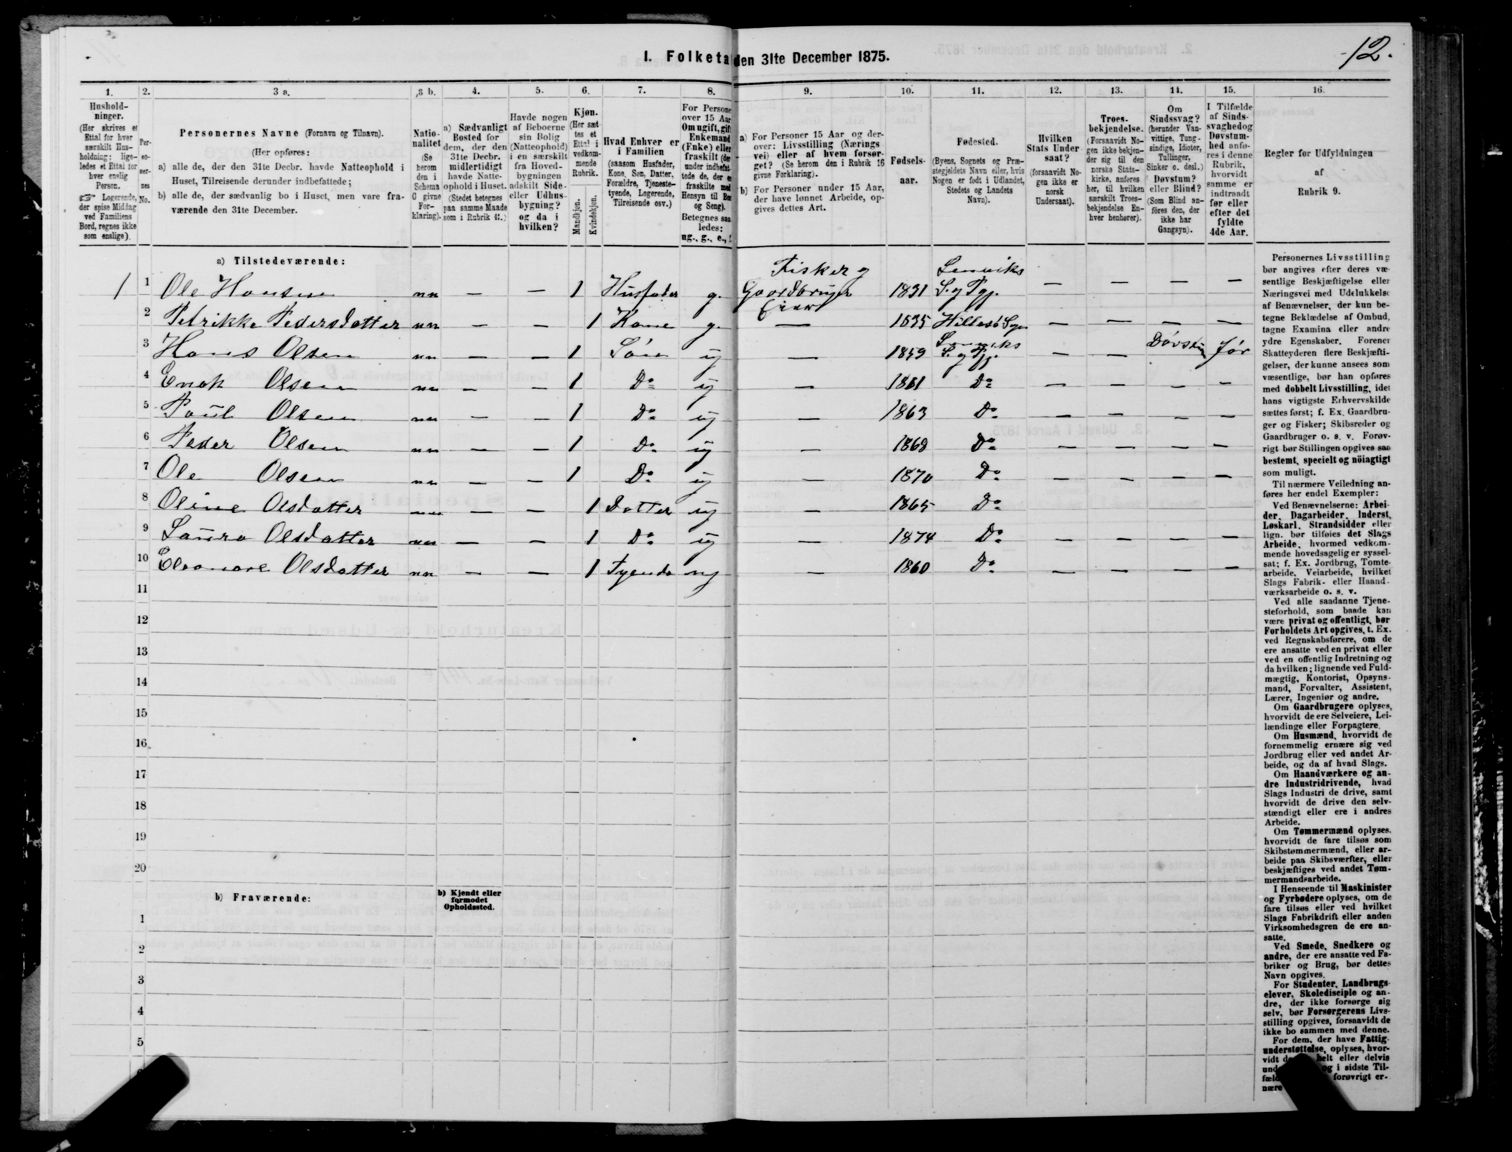 I. Folketa den 31te December 1875.
12.
1.
Hushold-
ninger.
(Her skrives et
Ettal for hver
særskilt Hus-
holdning; lige-
ledes et Ettal for
hver enslig
Person.
Logerende,
der spise Middag
ved Familiens
Bord, regnes ikke
som enslige).
2.
Per-
so-
ner-
nes
No.
3 a.
Personernes Navne (Fornavn og Tilnavn).
(Her opføres:
a) alle de, der den 31te Decbr. havde Natteophold i
Huset, Tilreisende derunder indbefattede;
b) alle de, der sædvanlig bo i Huset, men vare fra-
værende den 31te December.
3 b.
Natio-
nalitet
(Se
herom
den i
Schema
C givne
For-
klaring).
4.
a) Sædvanligt
Bosted for
dem, der den
31te Decbr.
midlertidigt
havde Natte-
ophold i Huset.
(Stedet betegnes
paa samme Maade
som i Rubrik 11.)
5.
Havde nogen
af Beboerne
sin Bolig
(Natteophold)
i en særskilt
fra Hoved-
bygningen
adskilt Side-
eller Udhus-
bygning?
og da i
hvilken?
6.
Kjøn.
(Her sæt-
tes et
Ettal i
vedkom-
mende
Rubrik.
Mandkjøn.
Kvindekjøn.
7.
Hvad Enhver er
i Familien
(saasom Husfader,
Kone, Søn, Datter,
Forældre, Tjeneste-
tyende, Logerende,
Tilreisende osv.)
8.
For Persone
over 15 Aar
Om ugift, gift
Enkemand
(Enke) eller
fraskilt (de
under indbefat-
tede de, der e
fraskilte med
Hensyn til Bo
og Seng).
Betegnes saa
ledes:
ug., g., e., f.
9.
a) For Personer 15 Aar og der-
over: Livsstilling (Nærings-
vei) eller af hvem forsør-
get? (Se herom den i Rubrik 16
givne Forklaring).
b) For Personer under 15 Aar,
der have lønnet Arbeide, op-
gives dettes Art.
10.
Fødsels-
aar.
11.
Fødested.
(Byens, Sognets og Præ-
stegjeldets Navn eller, hvis
Nogen er født i Udlandet,
Stedets og Landets
Navn).
12.
Hvilken
Stats Under
saat?
(forsaavidt No-
gen ikke er
norsk
Undersaat).
13.
Troes-
bekjendelse.
(Forsaavidt No-
gen ikke bekjen-
der sig til den
norske Stats-
kirke, anføres
her, til hvilken
særskilt Troes-
bekjendelse En-
hver henhører).
14.
Om
Sindssvag?
(herunder Van-
vittige, Tung-
sindige, Idioter,
Tullinger,
Sinker o. desl.)
Døvstum?
eller Blind?
(Som Blind an-
føres den, der
ikke har
Gangsyn).
15.
I Tilfælde
af Sinds-
svaghed og
Døvstum-
hed anfø-
res i denne
Rubrik,
hvorvidt
samme er
indtraadt
før eller
efter det
fyldte
4de Aar.
16.
Regler for Udfyldningen
af
Rubrik 9.
a) Tilstedeværende:
1 1 Ole Hansen nn — — 1 Husfader g. Fisker og Gaardbruger Eier 1831 Lenviks S. og Pgj. — — — —
2 Petrikke Pedersdatter nn — — 1 Kone g. — 1835 Hiltesø Sogn — — — —
3 Hans Olsen nn — — 1 Søn ug — 1859 Lenviks S. og Pgj. — — Døvstum før
4 Enok Olsen nn — — 1 Do ug — 1861 Do — — — —
5 Poul Olsen nn — — 1 Do ug — 1863 Do — — — —
6 Peder Olsen nn — — 1 Do ug — 1868 Do — — — —
7 Ole Olsen nn — — 1 Do ug — 1870 Do — — — —
8 Oline Olsdatter nn — — 1 Datter ug — 1865 Do — — — —
9 Laura Olsdatter nn — — 1 Do ug — 1874 Do — — — —
10 Eleonore Olsdatter nn — — 1 Tyende ug — 1860 Do — — — —
11
12
13
14
15
16
17
18
19
20
b) Fraværende:
b) Kjendt eller
formodet
Opholdssted.
1
2
3
4
5
Personernes Livsstilling
bør angives efter deres væ-
sentlige Beskjæftigelse eller
Næringsvei med Udelukkelse
af Benævnelser, der kun be-
tegne Beklædelse af Ombud,
tagne Examina eller andre
ydre Egenskaber. Forener
Skatteyderen flere Beskjæfti-
gelser, der kunne ansees som
væsentlige, bør han opføres
med dobbelt Livsstilling, idet
hans vigtigste Erhvervskilde
sættes først; f. Ex. Gaardbru-
ger og Fisker; Skibsreder og
Gaardbruger o. s. v. Forøv-
rigt bør Stillingen opgives saa
bestemt, specielt og nøiagtigt
som muligt.
Til nærmere Veiledning an-
føres her endel Exempler:
Ved Benævnelserne: Arbei-
der, Dagarbeider, Inderst,
Løskarl, Strandsidder eller
lign. bør tilføies det Slags
Arbeide, hvormed vedkom-
mende hovedsagelig er syssel-
sat; f. Ex. Jordbrug, Tomte-
arbeide, Veiarbeide, hvilket
Slags Fabrik- eller Haand-
værksarbeide o. s. v.
Ved alle saadanne Tjene-
steforhold, som baade kan
være privat og offentligt, bør
Forholdets Art opgives, t. Ex.
ved Regnskabsførere, om de
ere ansatte ved en privat eller
ved en offentlig Indretning og
da hvilken; lignende ved Fuld-
mægtig, Kontorist, Opsyns-
mand, Forvalter, Assistent,
Lærer, Ingeniør og andre.
Om Gaardbrugere oplyses,
hvorvidt de ere Selveiere, Lei-
lændinge eller Forpagtere.
Om Husmænd, hvorvidt de
fornemmelig ernære sig ved
Jordbrug eller ved andet Ar-
beide, og da af hvad Slags.
Om Haandværkere og an-
dre Industridrivende, hvad
Slags Industri de drive, samt
hvorvidt de drive den selv-
stændigt eller ere i andres
Arbeide.
Om Tømmermænd oplyses,
hvorvidt de fare tilsøs som
Skibstømmermænd, eller ar-
beide paa Skibsværfter, eller
beskjæftiges ved andet Tøm-
mermandsarbeide.
I Henseende til Maskinister
og Fyrbødere oplyses, om de
fare tilsøs eller ved hvilket
Slags Fabrikdrift eller anden
Virksomhedsgren de ere an-
satte.
Ved Smede, Snedkere og
andre, der ere ansatte ved Fa-
briker og Brug, bør dettes
Navn opgives.
For Studenter, Landbrugs-
elever, Skoledisciple og an-
dre, der ikke forsørge sig
selv, bør Forsørgerens Livs-
stilling opgives, forsaavidt de
ikke bo sammen med denne.
For dem, der have Fattig-
understøttelse, oplyses, hvor-
vidt de helt eller delvis
und og i sidste Til-
fæl forøvrigt er-
nære